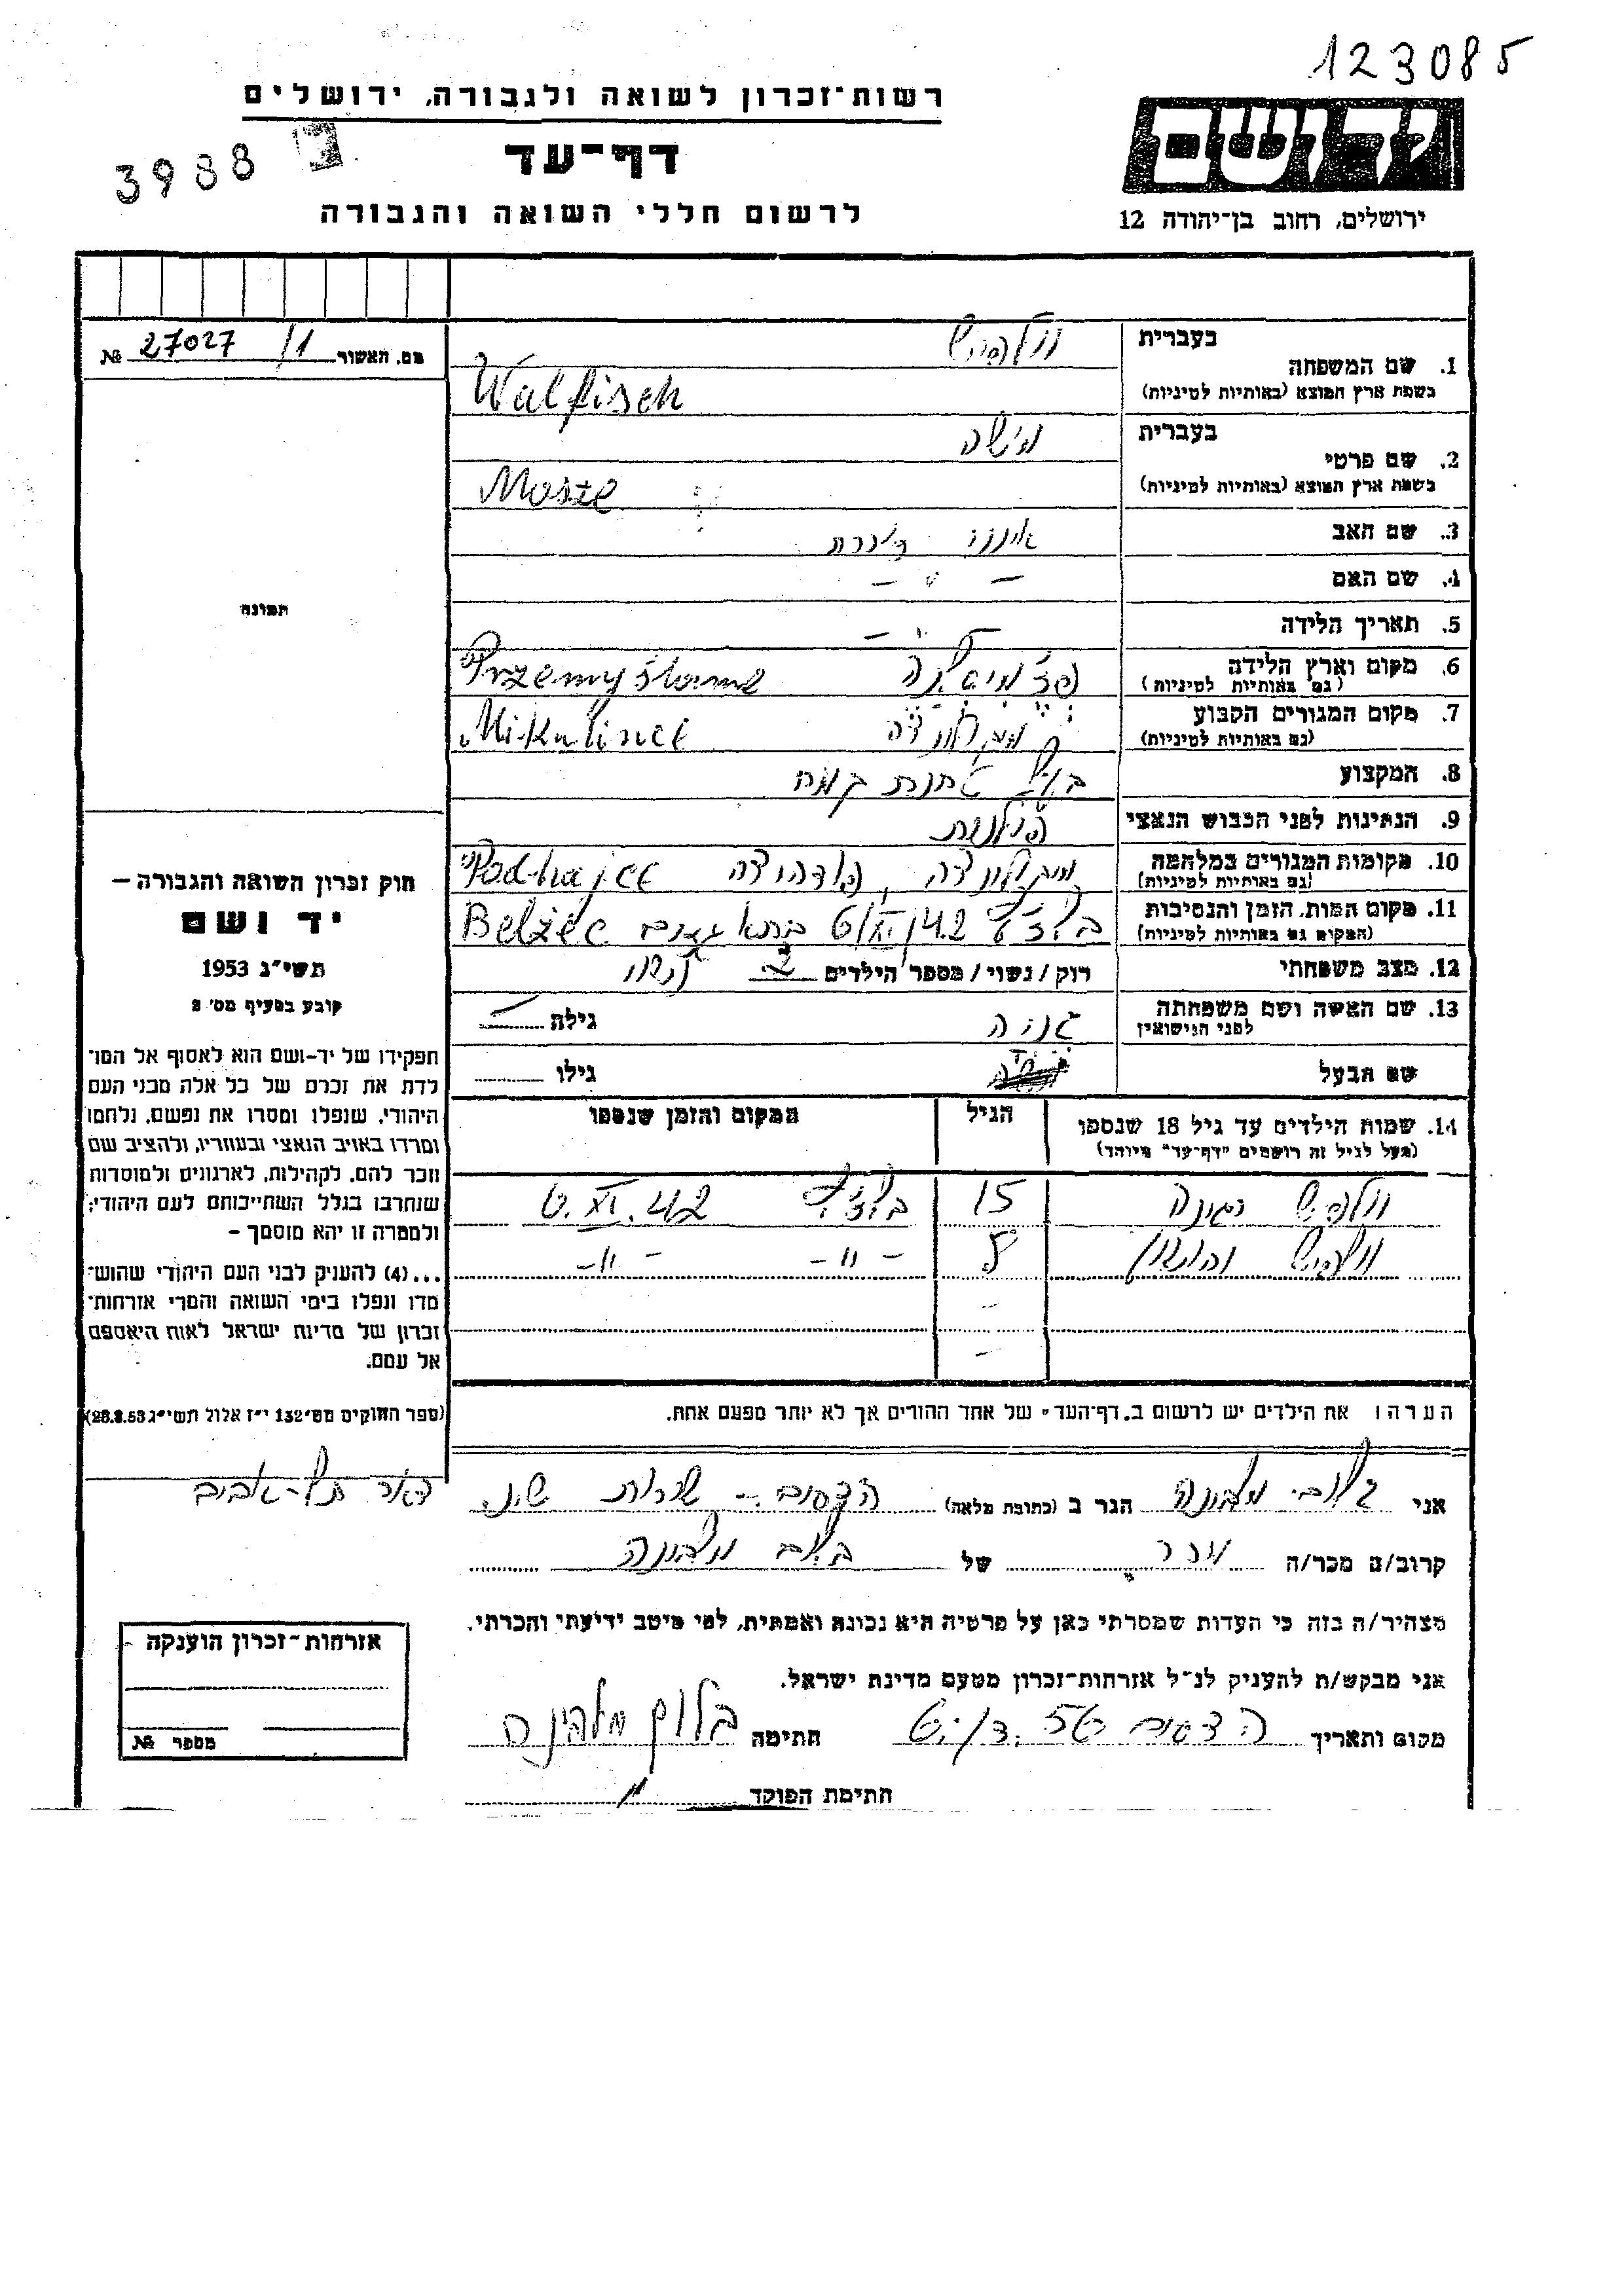 123085
רשות־זכרון לשואה ולגבורה, ירושלים
3988
דף־עד
לרשום חללי השואה והגבורה
יד ושם
ירושלים, רחוב בן־יהודה 12
מס. האשור 27027 /1 №
תמונה
1. שם המשפחה בעברית וולפיש
בשפת ארץ המוצא (באותיות לטיניות) Walfisch
2. שם פרטי בעברית מישה
בשפת ארץ המוצא (באותיות לטיניות) Mosze
3. שם האב אינני זוכרת
4. שם האם — " —
5. תאריך הלידה — " —
6. מקום וארץ הלידה
(גם באותיות לטיניות)
7. מקום המגורים הקבוע Mikulince
(גם באותיות לטיניות)
8. המקצוע בעל תחנת קמח
9. הנתינות לפני הכבוש הנאצי פולנית
10. מקומות המגורים במלחמה מיקולינצה, פודהיצה Podhajce
(גם באותיות לטיניות)
11. מקום המות, הזמן והנסיבות 6/XI/42 בתא גאזים Bełżec
(המקום גם באותיות לטיניות)
12. מצב משפחתי רוק/נשוי/מספר הילדים 2 נשוי
13. שם האשה ושם משפחתה גניה גילה
לפני הנישואין
שם הבעל גילו
14. שמות הילדים עד גיל 18 שנספו הגיל המקום והזמן שנספו
(מעל לגיל זה רושמים "דף־עד" מיוחד)
וולפיש רגינה 15 6.XI.42
וולפיש 5 — " — — " —
חוק זכרון השואה והגבורה –
יד ושם
תשי"ג 1953
קובע בסעיף מס' 2
תפקידו של יד-ושם הוא לאסוף אל המו־
לדת את זכרם של כל אלה מבני העם
היהודי, שנפלו ומסרו את נפשם, נלחמו
ומרדו באויב הנאצי ובעוזריו, ולהציב שם
וזכר להם, לקהילות, לארגונים ולמוסדות
שנחרבו בגלל השתייכותם לעם היהודי;
ולמטרה זו יהא מוסמך –
...(4) להעניק לבני העם היהודי שהוש־
מדו ונפלו בימי השואה והמרי אזרחות־
זכרון של מדינת ישראל לאות היאספם
אל עמם.
(ספר החוקים מס' 132 י"ז אלול תשי"ג 28.8.53)
דאר תל-אביב
הערה: את הילדים יש לרשום ב„דף־העד" של אחד ההורים אך לא יותר מפעם אחת.
אני בלום מלבינה הגר ב (כתובת מלאה)
קרוב/ה מכר/ה מכר של בלום מלבינה
מצהיר/ה בזה כי העדות שמסרתי כאן על פרטיה היא נכונה ואמתית, לפי מיטב ידיעתי והכרתי.
אני מבקש/ת להעניק לנ"ל אזרחות־זכרון מטעם מדינת ישראל.
מקום ותאריך חתימה
חתימת הפוקד
אזרחות־זכרון הוענקה
מספר №